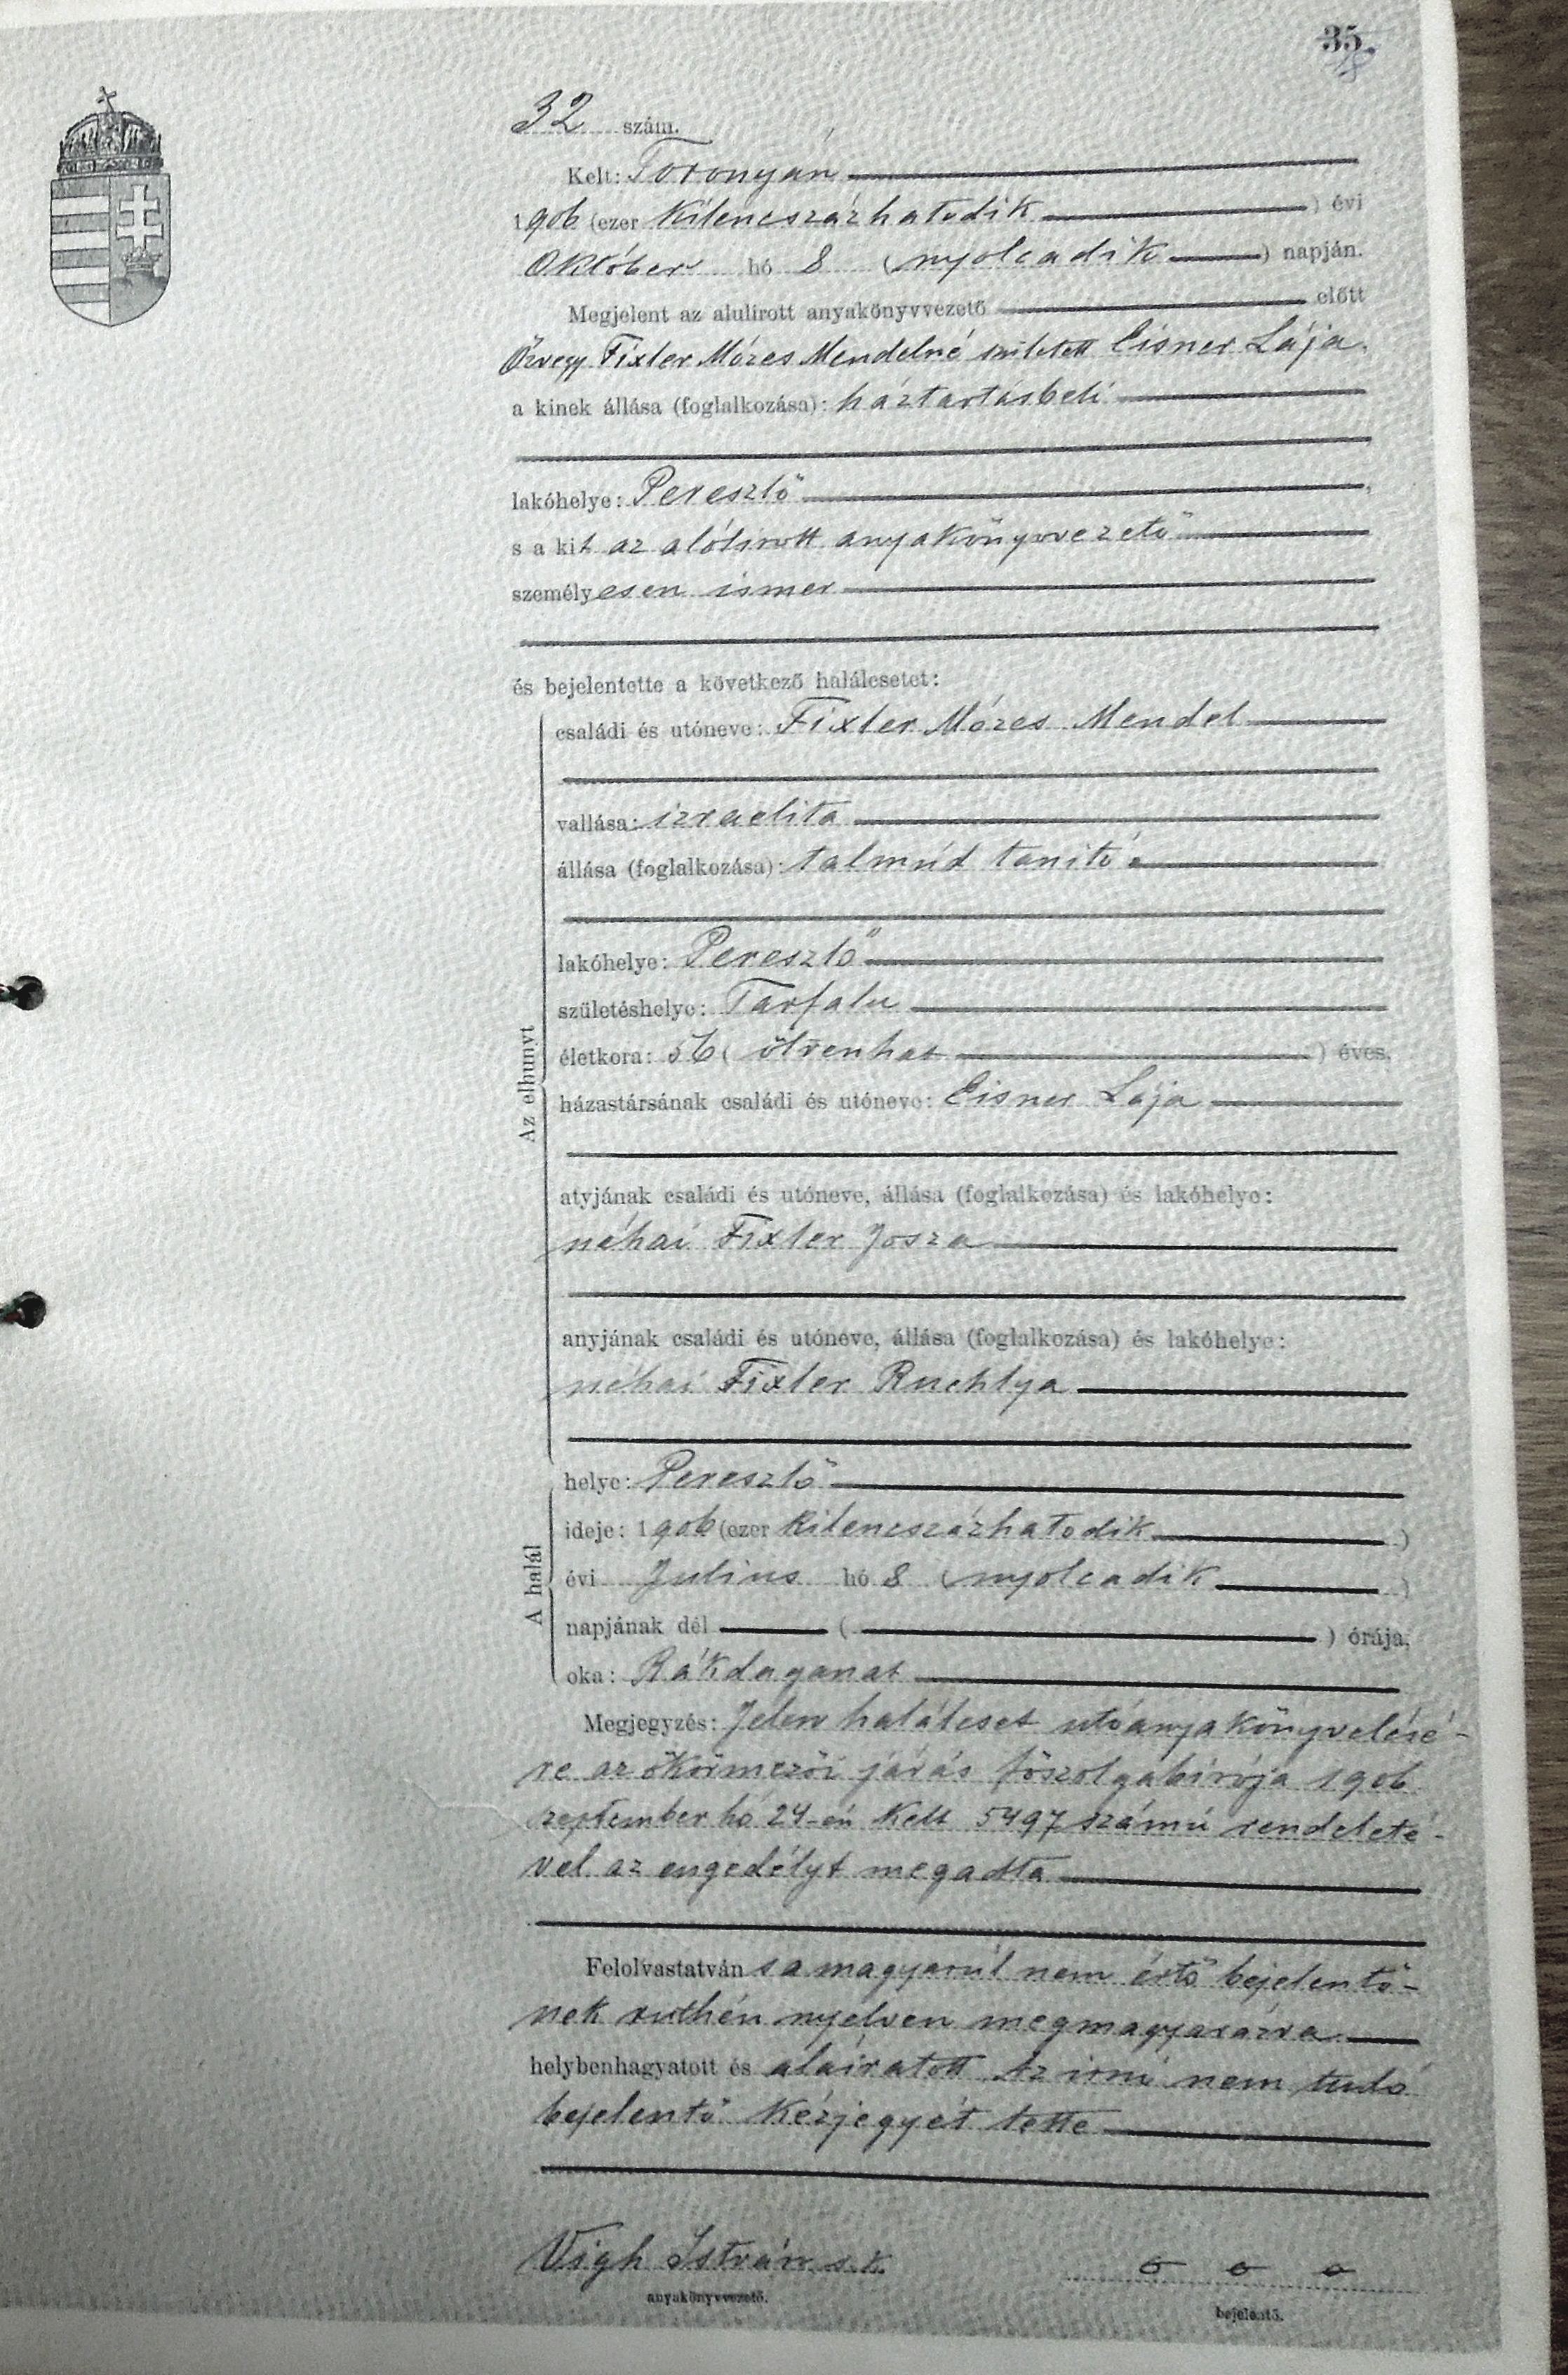 35.
32 szám.
Kelt: Toronyán
1906 (ezer kilencszázhatodik ) évi
Október hó 8 (nyolcadik ) napján.
Megjelent az alulírott anyakönyvvezető előtt
Özvegy Fixler Mózes Mendelné született Eisner Lája.
a kinek állása (foglalkozása): háztartásbeli
lakóhelye: Pereszlő ,
s a kit az alólírott anyakönyvvezető
személyesen ismer
és bejelentette a következő halálesetet:
Az elhunyt
családi és utóneve: Fixler Mózes Mendel
vallása: izraelita
állása (foglalkozása): talmúd tanító
lakóhelye: Pereszlő
születéshelye: Tarfalu
életkora: 56 ( ötvenhat ) éves,
házastársának családi és utóneve: Eisner Lája
atyjának családi és utóneve, állása (foglalkozása) és lakóhelye:
néhai Fixler Josza
anyjának családi és utóneve, állása (foglalkozása) és lakóhelye:
néhai Fixler Ruchlya
A halál
helye: Pereszlő
ideje: 1906 (ezer kilencszázhatodik )
évi Julius hó 8 (nyolcadik )
napjának dél ( ) órája,
oka: Rákdaganat
Megjegyzés: Jelen haláleset utóanyakönyvelésé-
re az ökörmezői járás főszolgabírója 1906
szeptember hó 24-én kelt 5497 számú rendeleté-
vel az engedélyt megadta
Felolvastatván s a magyarúl nem értő bejelentő-
nek ruthén nyelven megmagyarázva
helybenhagyatott és aláiratott Az irni nem tudó
bejelentő kézjegyét tette
Vigh István s. k.
anyakönyvvezető.
bejelentő.